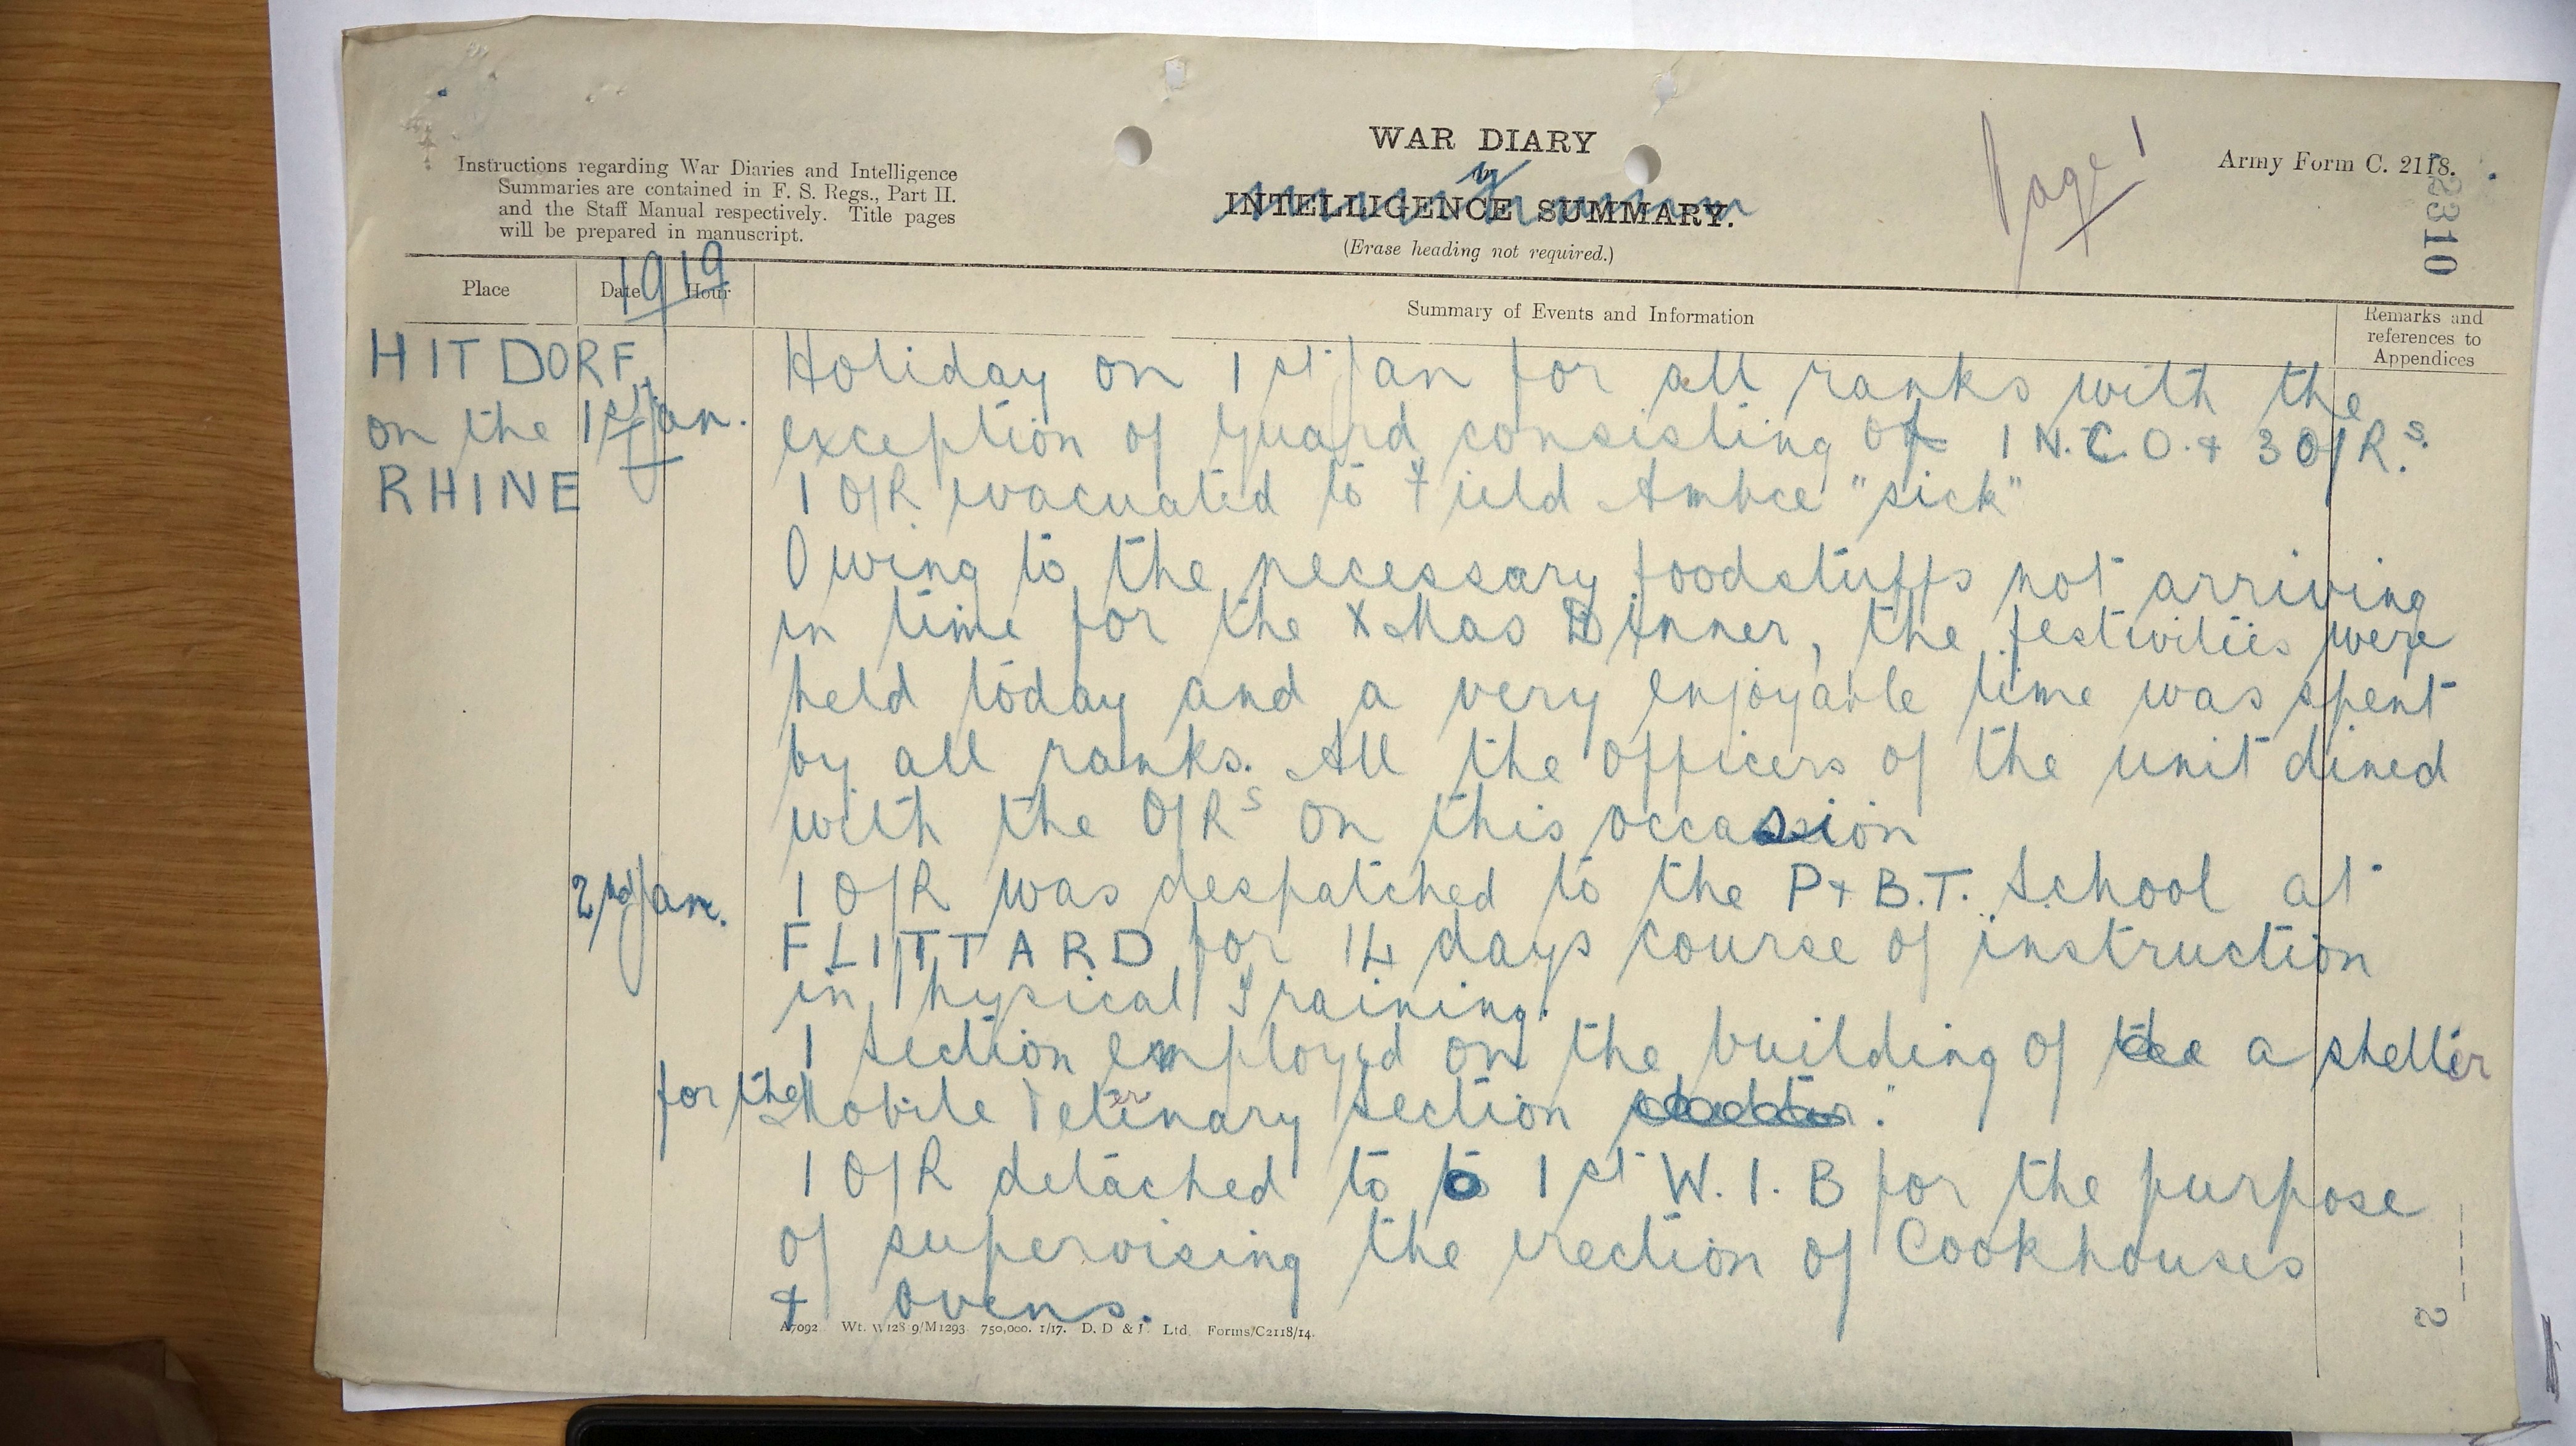 WAR DIARY
or
INTELLIGENCE SUMMARY.
(Erase heading not required.)
Instructions regarding War Diaries and Intelligence
Summaries are contained in F. S. Regs., Part II.
and the Staff Manual respectively. Title pages
will be prepared in manuscript.
Page 1
Army Form C. 2118.
2310
1919
Place
Date
Hour
Summary of Events and Information
Remarks and
references to
Appendices
HITDORF
on the
RHINE
1st Jan.
Holiday on 1st Jan for all ranks with the
exception of Guard consisting of 1 N.C.O. + 3 O/Rs.
1 O/R evacuated to Field Ambce "sick"
Owing to the necessary foodstuffs not arriving
in time for the XMas Dinner, the festivities were
held today and a very enjoyable time was spent
by all ranks. All the officers of the unit dined
with the O/Rs on this occasion
2nd Jan.
1 O/R was despatched to the P + B.T. School at
FLITTARD for 14 days course of instruction
in Physical Training.
1 Section employed on the building of a shelter
for the Mobile Veterinary Section .
1 O/R detached to 1st W.I.B for the purpose
of supervising the erection of Cookhouses
+ Ovens.
A7092 Wt. W128 9/M1293 750,000. 1/17. D. D & L. Ltd. Forms/C2118/14.
2